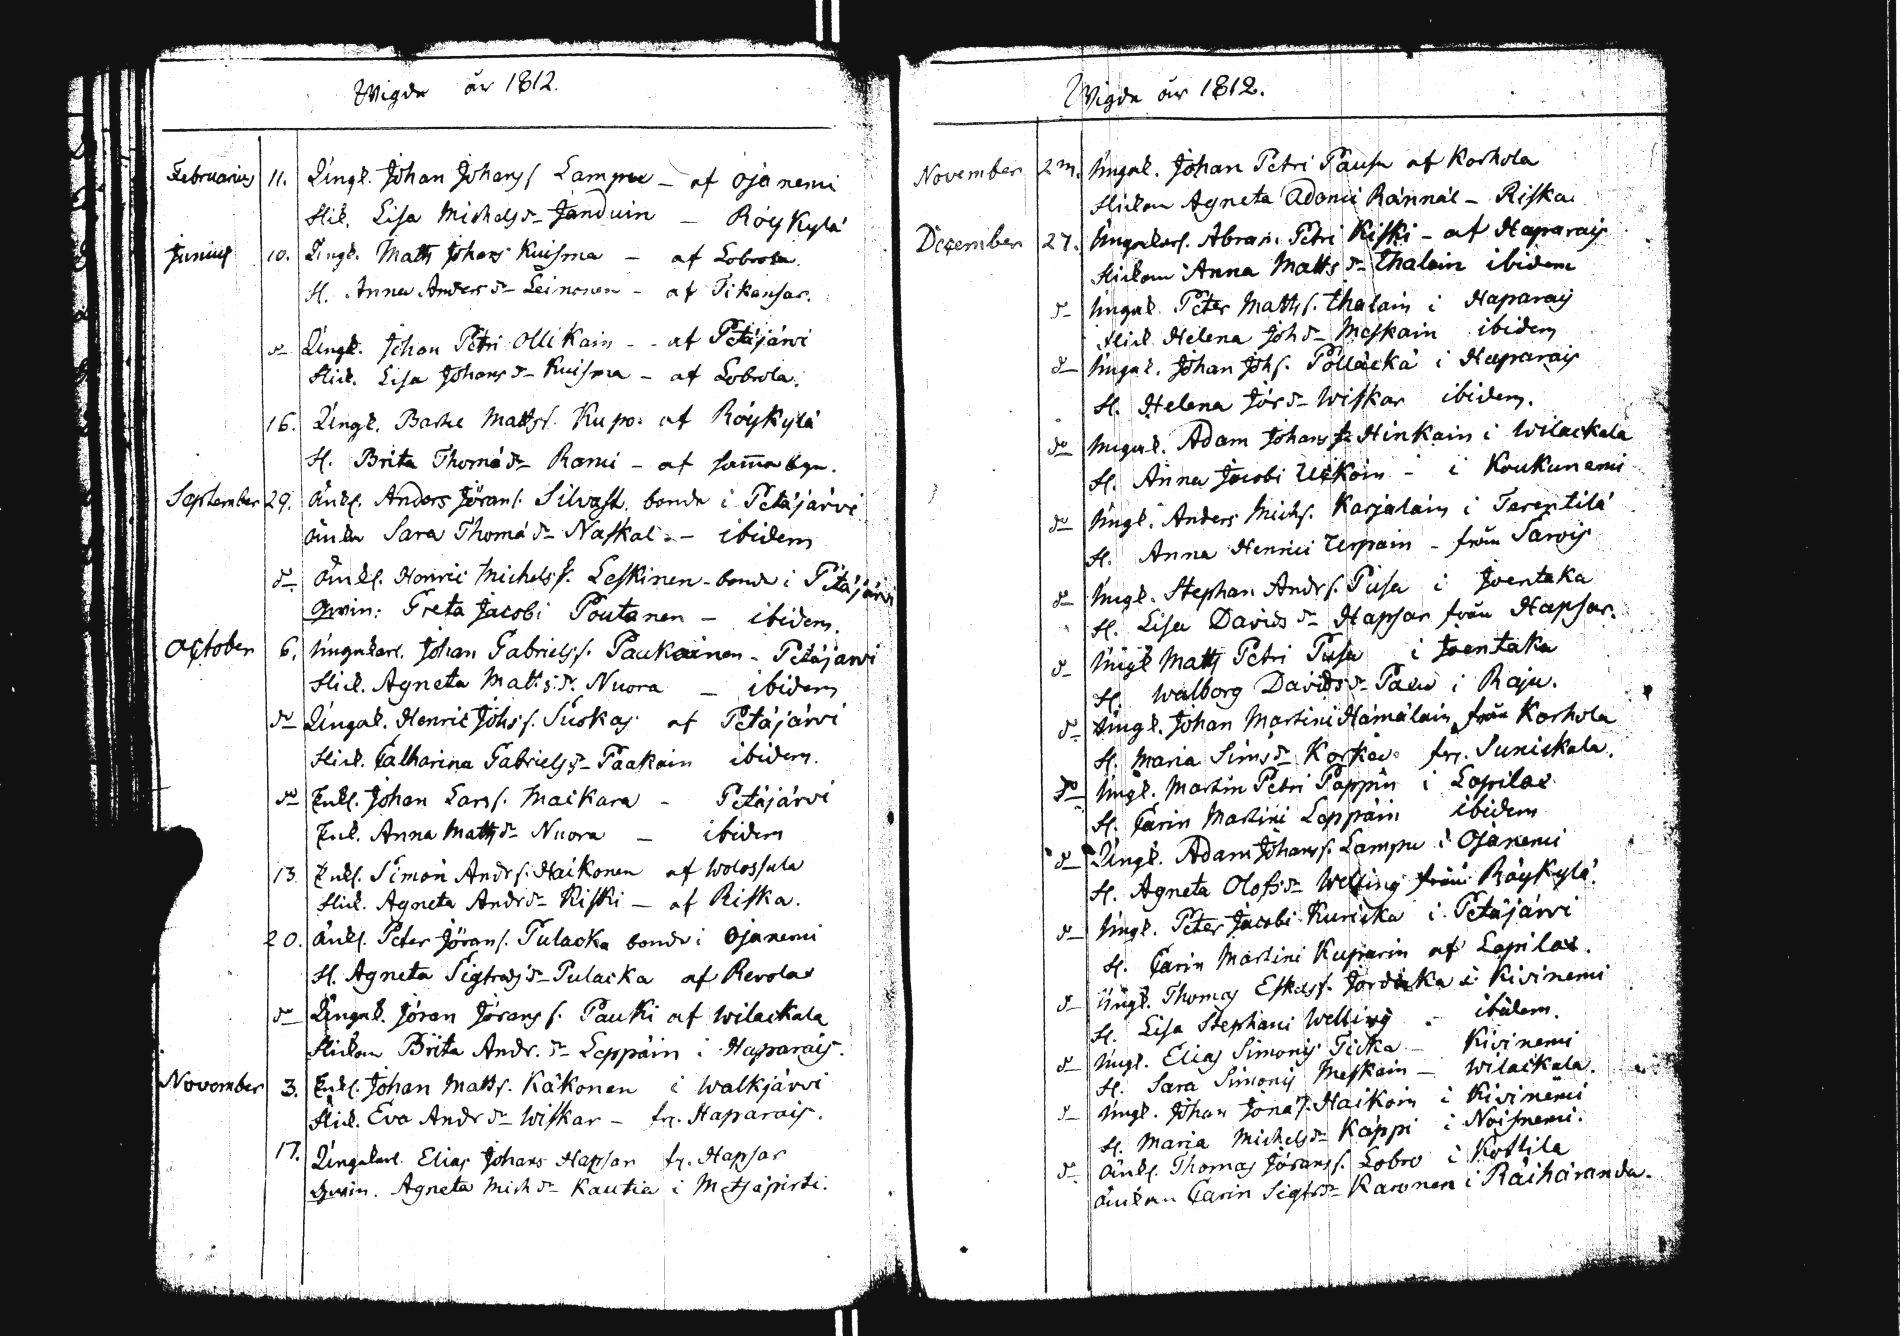 Wigda år 1812.
Februarius 11. Ungk. Johan Johanss. Lampu – af Ojanemi
Hust. Lisa Michelsdr Janduin – Röykylä
Junius 10. Ungk. Matts Johans Kuisma – af Lobrola
H. Anna Andersdr Leinonen – af Tikansar.
do Ungk. Johan Petri Ollikain – af Petäjärvi
Lisa Johansdr Kuisma – af Lobrola.
16. Ungk. Matts. Kupo: af Röykylä
H. Brita Thomædr Rami – af samma
September 29. Änkl. Anders Jörans. Silvast. bonde i Petäjärvi
Änkn Sara Thomædr Naskal – ibidem
do Änkl. Henric Michelss. Leskinen – bonde i Petäjärvi
Greta Jacobi Poutanen – ibidem.
October 6. Ungkarl. Johan Gabrielss. Paukainen – Petäjärvi
Agneta Mattsdr. Nuora – ibidem
do Ungk. Henric Johss. Suokas af Petäjärvi
Catharina Gabrielsdr Paakain ibidem.
do Enkl. Johan Larss. Maikara – Petäjärvi
Enk. Anna Mattsdr Nuora – ibidem
13. Enkl. Simon Andrs. Haikonen af Wolossula
Agneta Andrsdr Kiski – af Riska.
20. Änkl. Peter Jörans. Pulacka bonde i Ojanemi
H. Agneta Sigfredsdr Pulacka af Revola
do Ungk. Jöran Jöranss. Pauki af Wilackala
Brita Andr.dr Leppäin i Haparais.
November 3. Enkl. Johan Matts. Käkonen i Walkjärvi
Eva Andrsdr Wiskar – fr. Haparais.
17. Ungkarl. Elias Johans Hapsar fr. Hapsar
Agneta Michdr Kautia i Metsäpirti.
Wigda år 1812.
November Ungk. Johan Petri Pausu af Korhola
Agneta Adami Rännäl – Riska
December 27. Ungkarl. Abram Petri Kiski – af Haparais
Anna Mattsdr Ihalain ibidem
do Ungk. Peter Matts. Ihalain i Haparais
Helena Johdr Meskain ibidem
do Ungk. Johan Johs. Pölläckä i Haparais
H. Helena Jördr Wiskar ibidem.
do Ungk. Adam Johanss Hinkain i Wilackala
H. Anna Jacobi Uskoin – i Koukunemi
do Ungk. Anders Michs. Karjalain i Terentilä
H. Anna Henrici Urpain – från Sarvis
do Ungk. Stephan Andrs. Pusa i Joentaka
H. Lisa Davidsdr Hapsar från Hapsar.
do Ungk Matts Petri Pusa i Joentaka
H. Walborg Davidsdr i Raju.
do Ungk. Johan Martini Hämäläin från Korhola
H. Maria Simsdr fr. Sunickala.
do Ungk. Martin Petri Pappin i Lopilas
H. Carin Martini Leppäin ibidem
do Ungk. Adam Johanss. Lampu i Ojanemi
H. Agneta Olofsdr Welling från Röykylä.
do Ungk. Peter Jacobi Kuricka i Petäjärvi
H. Carin Martini Kuparin af Lopilas.
do Ungk. Thomas Eskelss. Jordicka i Kivinemi
H. Lisa Stephani Welling – ibidem.
do Ungk. Elias Simonis Ticka – Kivinemi
H. Sara Simonis Meskain – Wilackala.
do Ungk. Johan Jonæs. Haikoin i Kivinemi
H. Maria Michelsdr Käppi i Noisnemi.
do Änkl. Thomas Jöranss. Lobro i Kottila
Änkan Carin Sigfrdr Karonen i Räihäranda.